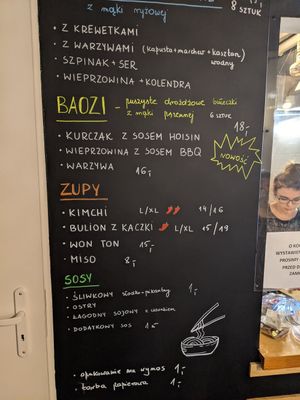 z mąki ryżowej 8 SZTUK
• Z KREWETKAMI
• Z WARZYWAMI (kapusta+marchew+kasztan wodny)
• SZPINAK+SER
• WIEPRZOWINA+KOLENDRA
BAOZI - puszyste drożdżowe bułeczki
z mąki pszennej 6 sztuk
18,-
• KURCZAK Z SOSEM HOISIN
• WIEPRZOWINA Z SOSEM BBQ
NOWOŚĆ
• WARZYWA
16,-
ZUPY
• KIMCHI L/XL 14/16
• BULION Z KACZKI L/XL 15/19
• WON TON 15,-
• MISO 8,-
SOSY
• ŚLIWKOWY słodko-pikantny 1,-
• OSTRY
• ŁAGODNY SOJOWY z czosnkiem
• DODATKOWY SOS
• opakowanie na wynos 1,-
• torba papierowa 1,-